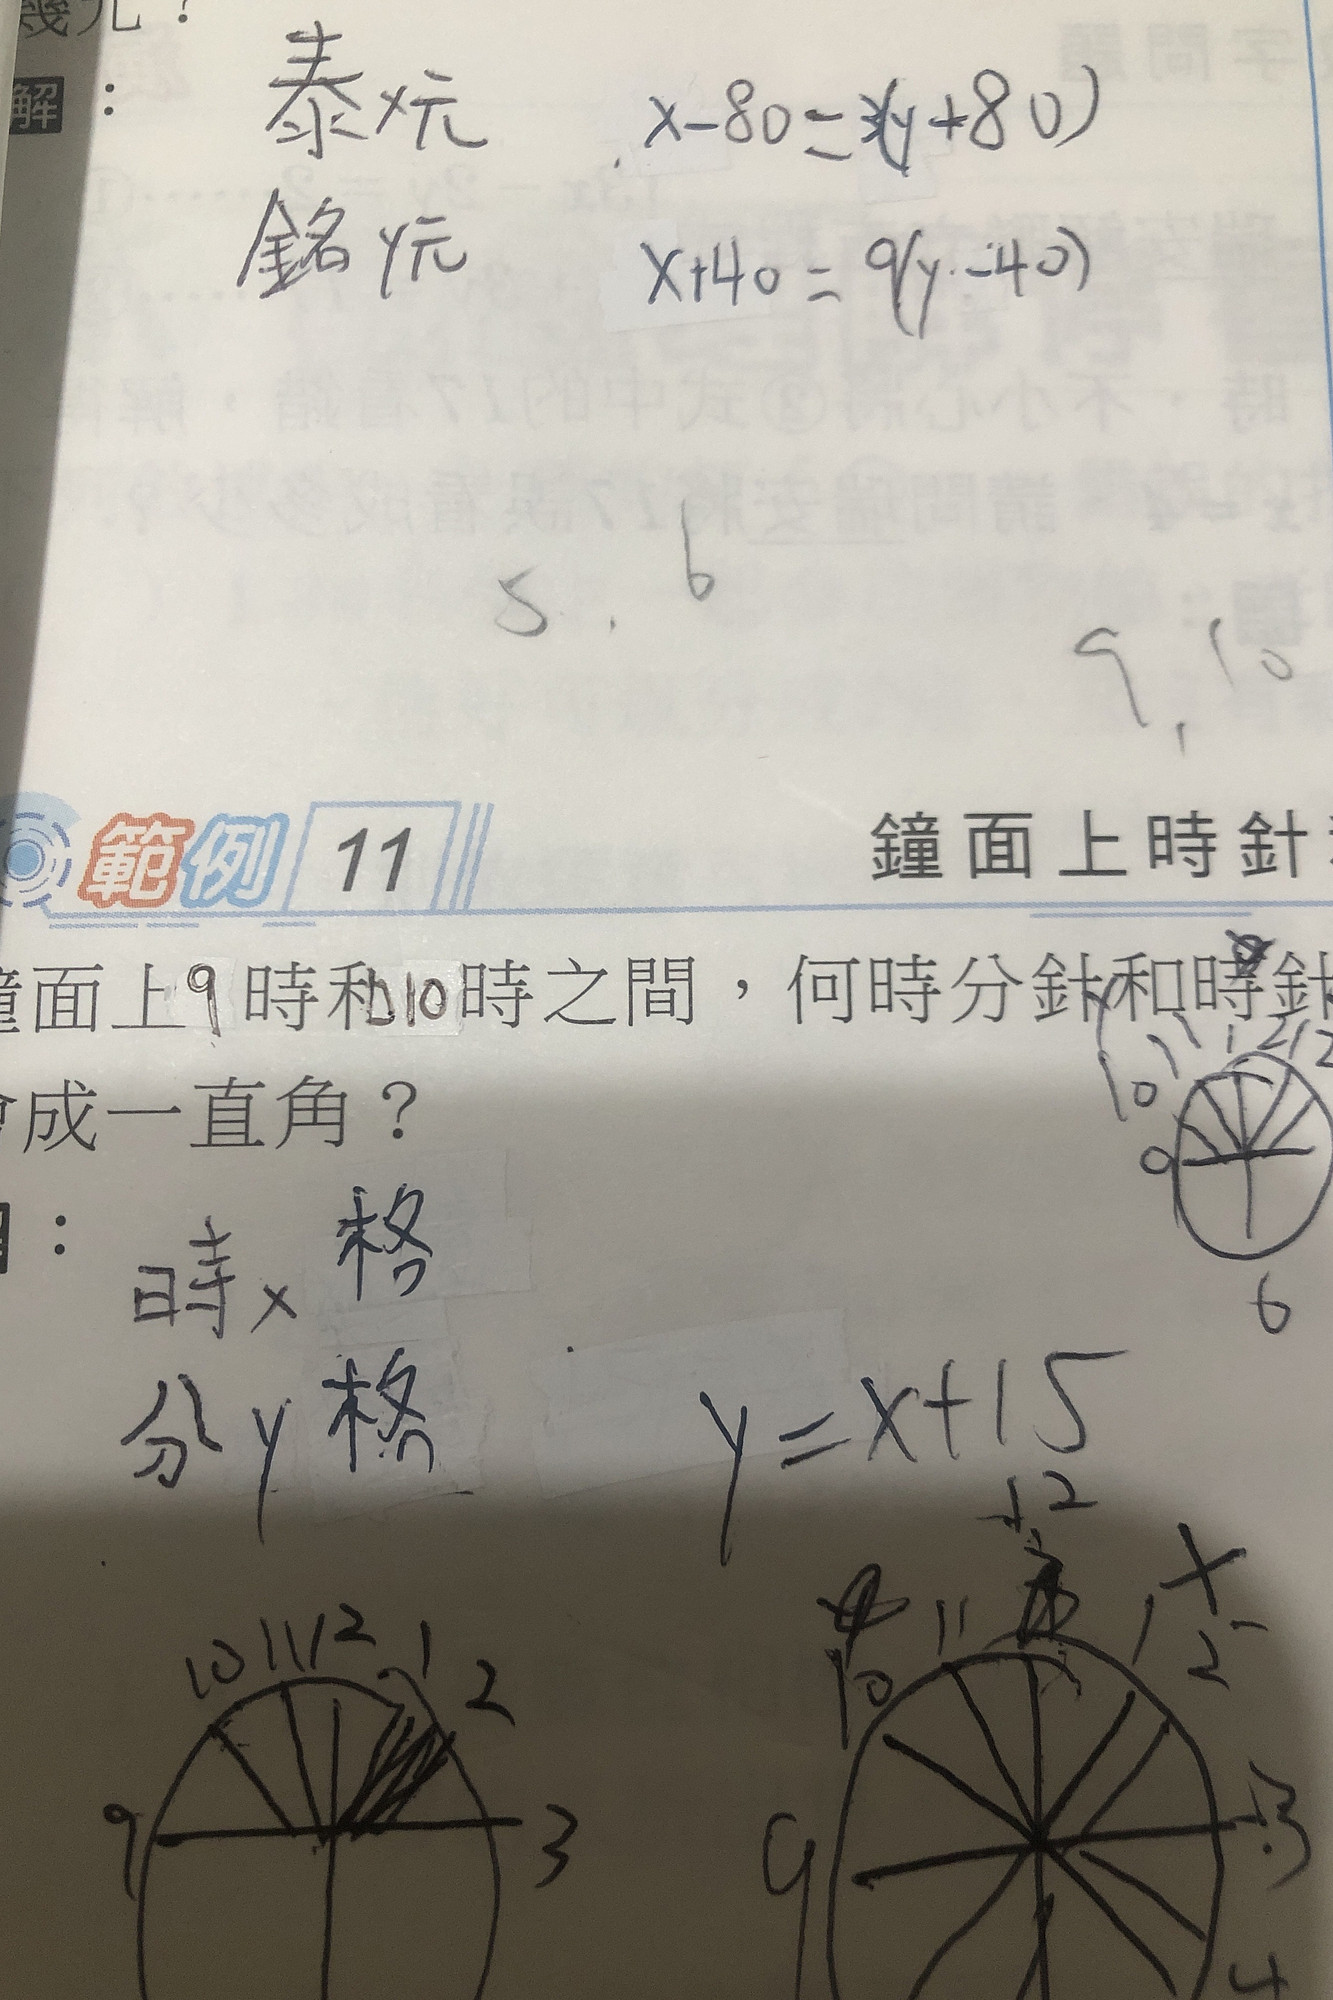 幾元？
解：
泰 x元 x-80=3(y+80)
銘 y元 x+40=9(y-40)
5.6
9.10
範例 11 鐘面上時針
鐘面上9時和10時之間，何時分針和時針
會成一直角？
：
時 x 格
分 y 格 y=x+15
10 11 12 1 2
9 3
10 11 12 1 2
9 3
4
10 11 12
9
6